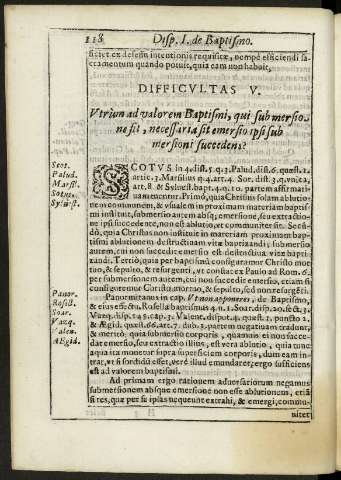 118 Disp. I. de Baptismo.
ficiet ex defectu intentionis requisitæ, nempè efficiendi sa-
cramentum quando potuit, quia eam non habuit.
DIFFICVLTAS V.
Vtrùm ad valorem Baptismi, qui sub mersio-
ne fit, necessaria sit emersio ipsi sub
mersioni succedens?
Scot.
Palud.
Marsil.
Sotus.
Sylvest.
SCOTVS in 4. dist. 5. q. 3. Palud. dist. 6. quæst. 1.
artic. 3. Marsilius q. 4. art. 4. Sot. dist. 3. q. vnica,
art. 8. & Syluest. bapt. 4. n. 10. partem affirmati-
uam tuentur. Primò, quia Christus solam ablutio-
nem communem, & vsualem in proximam materiam baptis-
mi instituit, submersio autem absq; emersione, seu extractio-
ne ipsi succedente, non est ablutio, vt communiter sit. Secun-
dò, quia Christus non instituit vt materiam proximam bap-
tismi ablutionem destructiuam vitæ baptizandi; submersio
autem, cui non succedit emersio est destructiua vitæ bapti-
zandi. Tertiò, quia per baptismū configuramur Christo mor-
tuo, & sepulto, & resurgenti, vt constat ex Paulo ad Rom. 6.
per submersionem autem, cui non succedit emersio, etiam si
configuremur Christo mortuo, & sepulto, sed non resurgēti.
Panor.
Rosell.
Soar.
Vazq.
Valen.
Ægid.
Panormitanus in cap. Vt non apponeres, de Baptismo,
& eius effectu, Rosella baptismus 4. n. 1. Soar. disp. 20. sect. 3.
Vazq. disp. 145. cap. 3. Valent. disput. 4. quæst. 1. puncto 2.
& Ægid. quæst. 66. art. 7. dub. 3. partem negatiuam tradunt,
& meritò, quia submersio corporis, quamuis ei non succe-
dat emersio, seu extractio illius, est vera ablutio, quia tunc
aqua ita mouetur supra superficiem corporis, dum eam in-
trat, vt si sordidū esset, verè illud emundaret, ergo sufficiens
est ad valorem baptismi.
Ad primam ergo rationem aduersariorum negamus
submersionem absque emersione non esse ablutionem, etiā
si res, quæ per se ipsas nequeunt extrahi, & emergi, commu-
niter